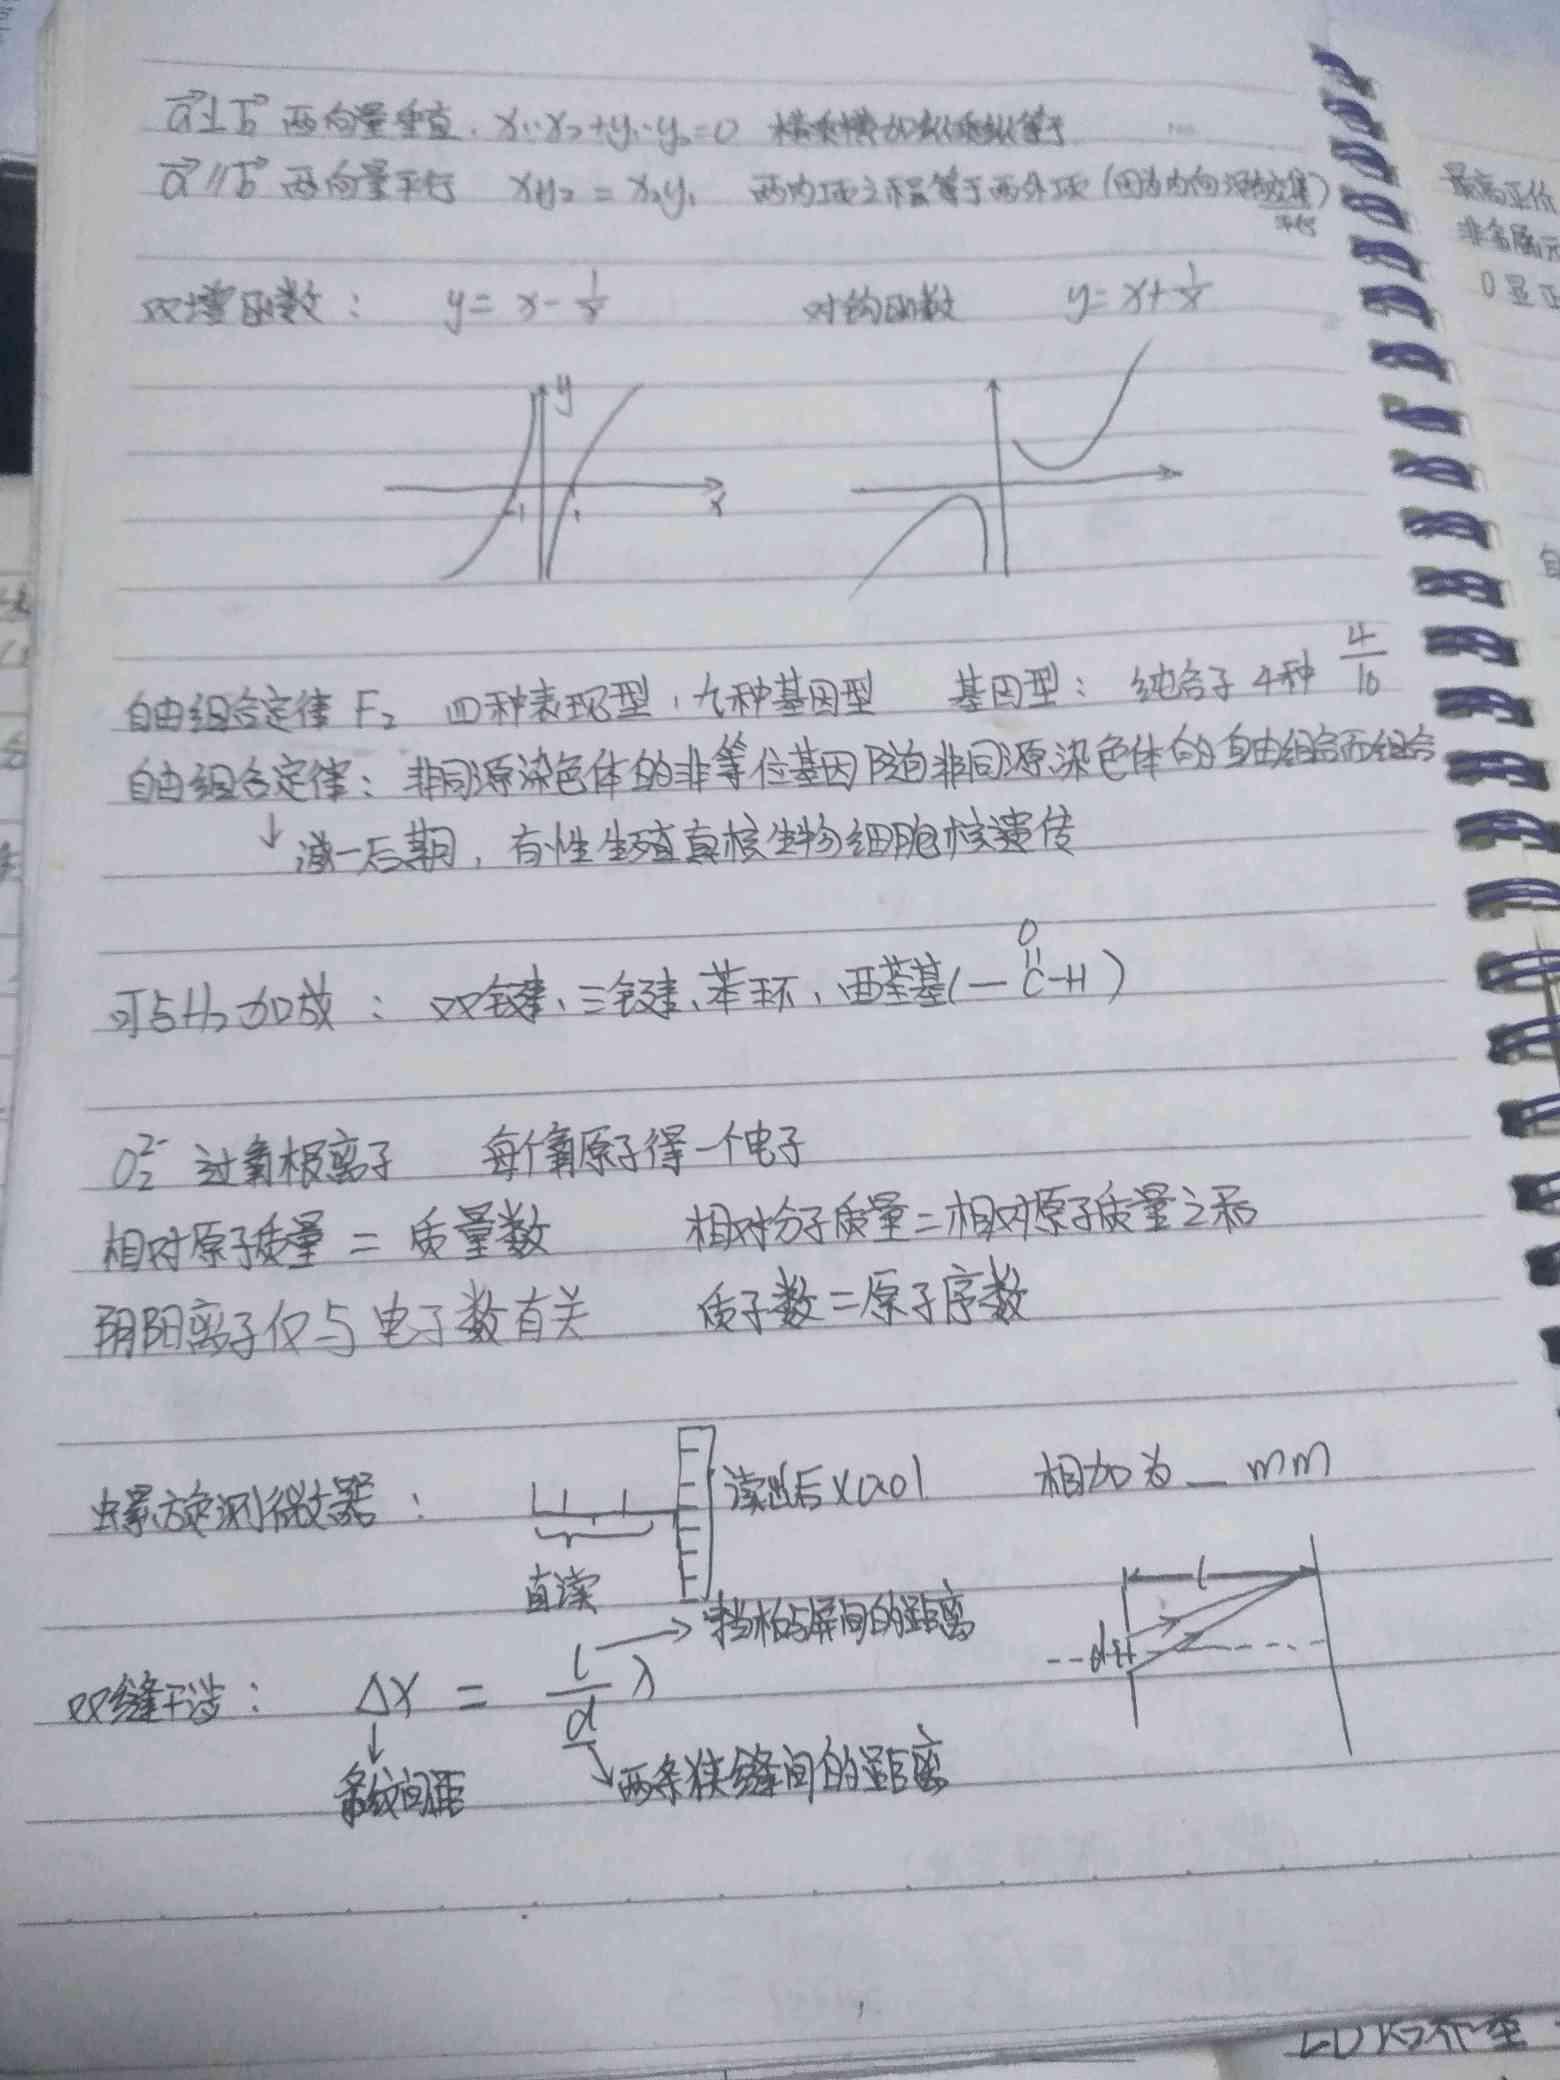 a⊥b 两向量垂直. x₁·x₂+y₁·y₂=0 横乘横加纵乘纵等于
a∥b 两向量平行 x₁y₂=x₂y₁ 两内项之积等于两外项(因为内向 平行)
双增函数: y=x-1/x 对钩函数 y=x+1/x
y
-1 1 x
自由组合定律 F₂ 四种表现型,九种基因型 基因型: 纯合子4种 4/16
自由组合定律: 非同源染色体的非等位基因随非同源染色体的自由组合而组合
↓减一后期,有性生殖真核生物细胞核遗传
O
可与H₂加成: 双键、三键、苯环、醛基(—C-H)
O₂²⁻ 过氧根离子 每个氧原子得一个电子
相对原子质量=质量数 相对分子质量=相对原子质量之和
阴阳离子仅与电子数有关 质子数=原子序数
螺旋测微器: 读出后×0.01 相加为_mm
直读
l
→挡板与屏间的距离
--d
双缝干涉: Δx = l/d λ
↓条纹间距 ↘两条狭缝间的距离
最高正价
非金属元
O显正
自